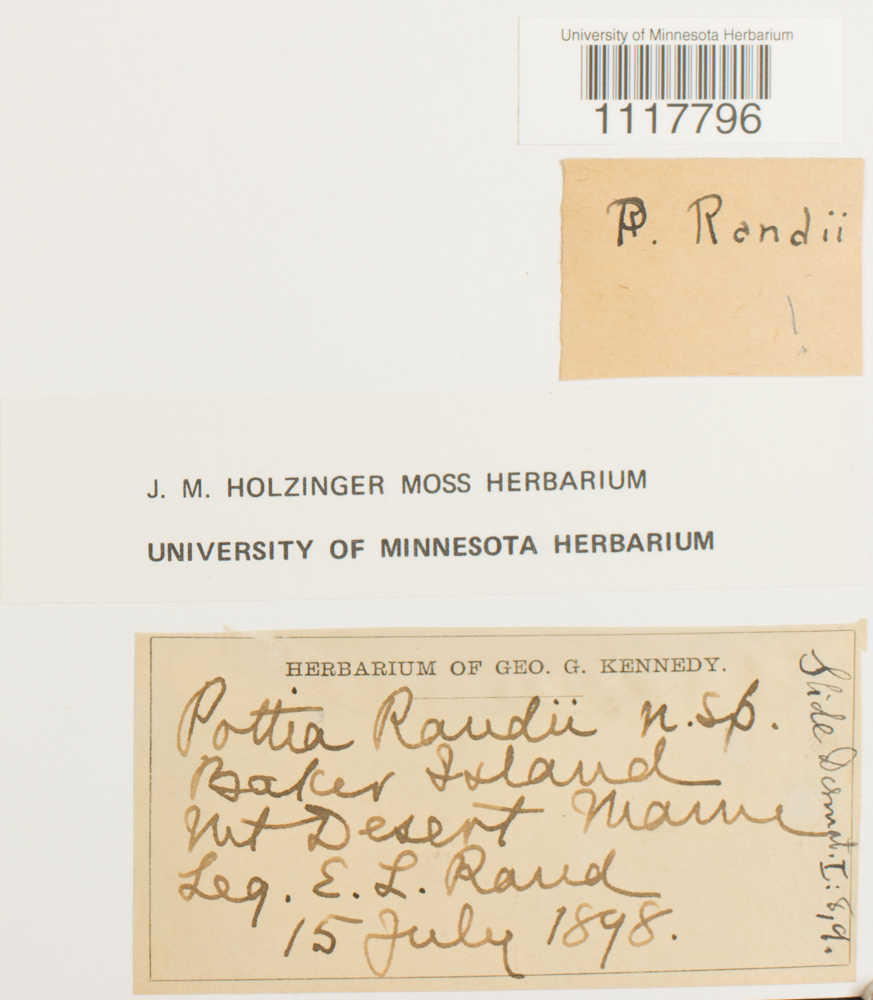 University of Minnesota Herbarium
1117796
P. Randii
!
J. M. HOLZINGER MOSS HERBARIUM
UNIVERSITY OF MINNESOTA HERBARIUM
HERBARIUM OF GEO. G. KENNEDY.
Pottia Randii n.sp.
Baker Island
Mt Desert Maine
Leg. E. L. Rand
15 July 1898.
Slide Dermat. I: 8,9.